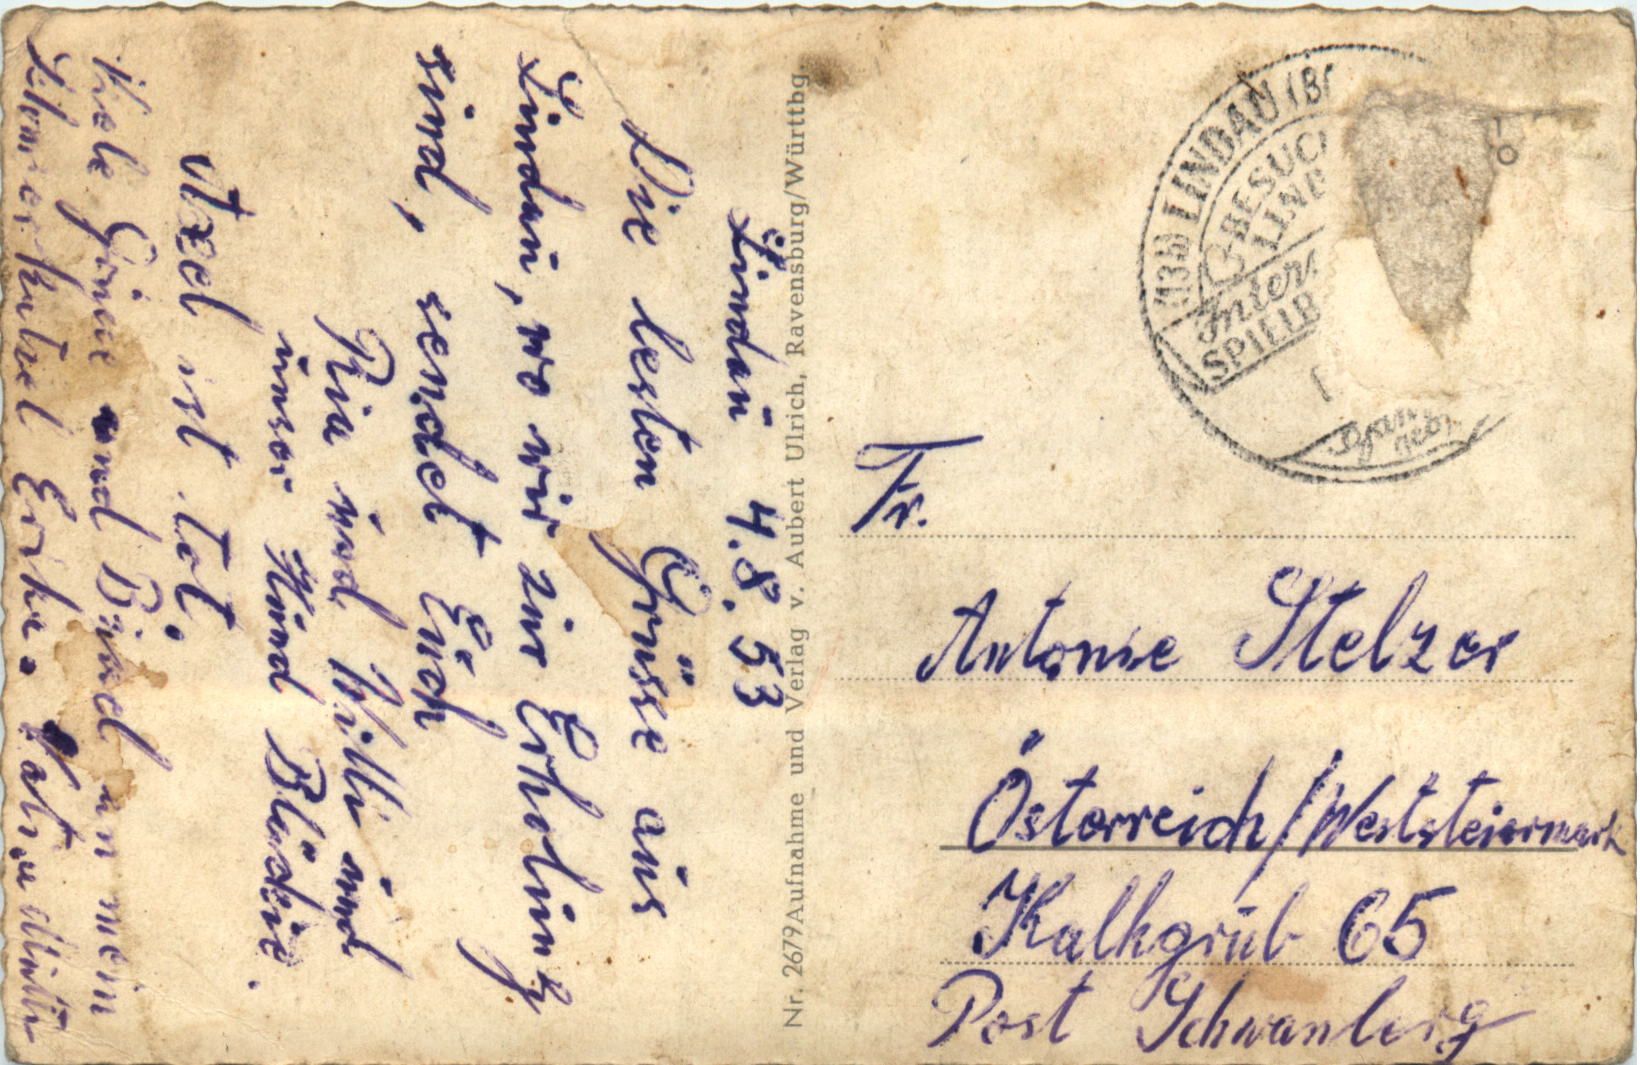 Lindaü 4.8.53
Die besten Grüsse aüs
Lindaü, wo wir zür Erholüng
sind, sendet Eüch
Ria ünd Willi ünd
ünser Hünd Blückie.
Axel ist tot.
Viele Grüsse und Bussel an mein
Erika.
Nr. 2679 Aufnahme und Verlag v. Aubert Ulrich, Ravensburg/Württbg.
(13b) LINDAU (B
BESUCH
LIND
Inter
SPIELB
Fr.
Antonie Stelzer
Österreich/Weststeiermark
Kalkgrüb 65
Post Schwanberg